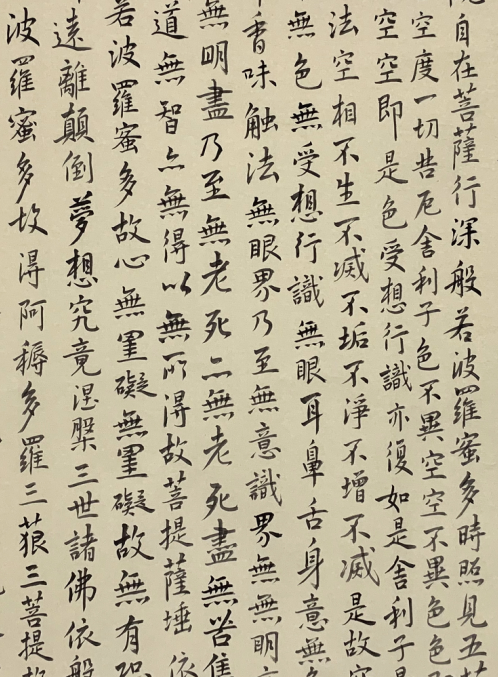 自在菩薩行深般若波羅蜜多時照見五
空度一切苦厄舍利子色不異空空不異色色即
空空即是色受想行識亦復如是舍利子是
法空相不生不滅不垢不淨不增不減是故空
無色無受想行識無眼耳鼻舌身意無色
香味触法無眼界乃至無意識界無無明亦
無明盡乃至無老死亦無老死盡無苦集
道無智亦無得以無所得故菩提薩埵依
若波羅蜜多故心無罣礙無罣礙故無有恐
遠離顛倒夢想究竟涅槃三世諸佛依般
波羅蜜多故得阿耨多羅三藐三菩提故